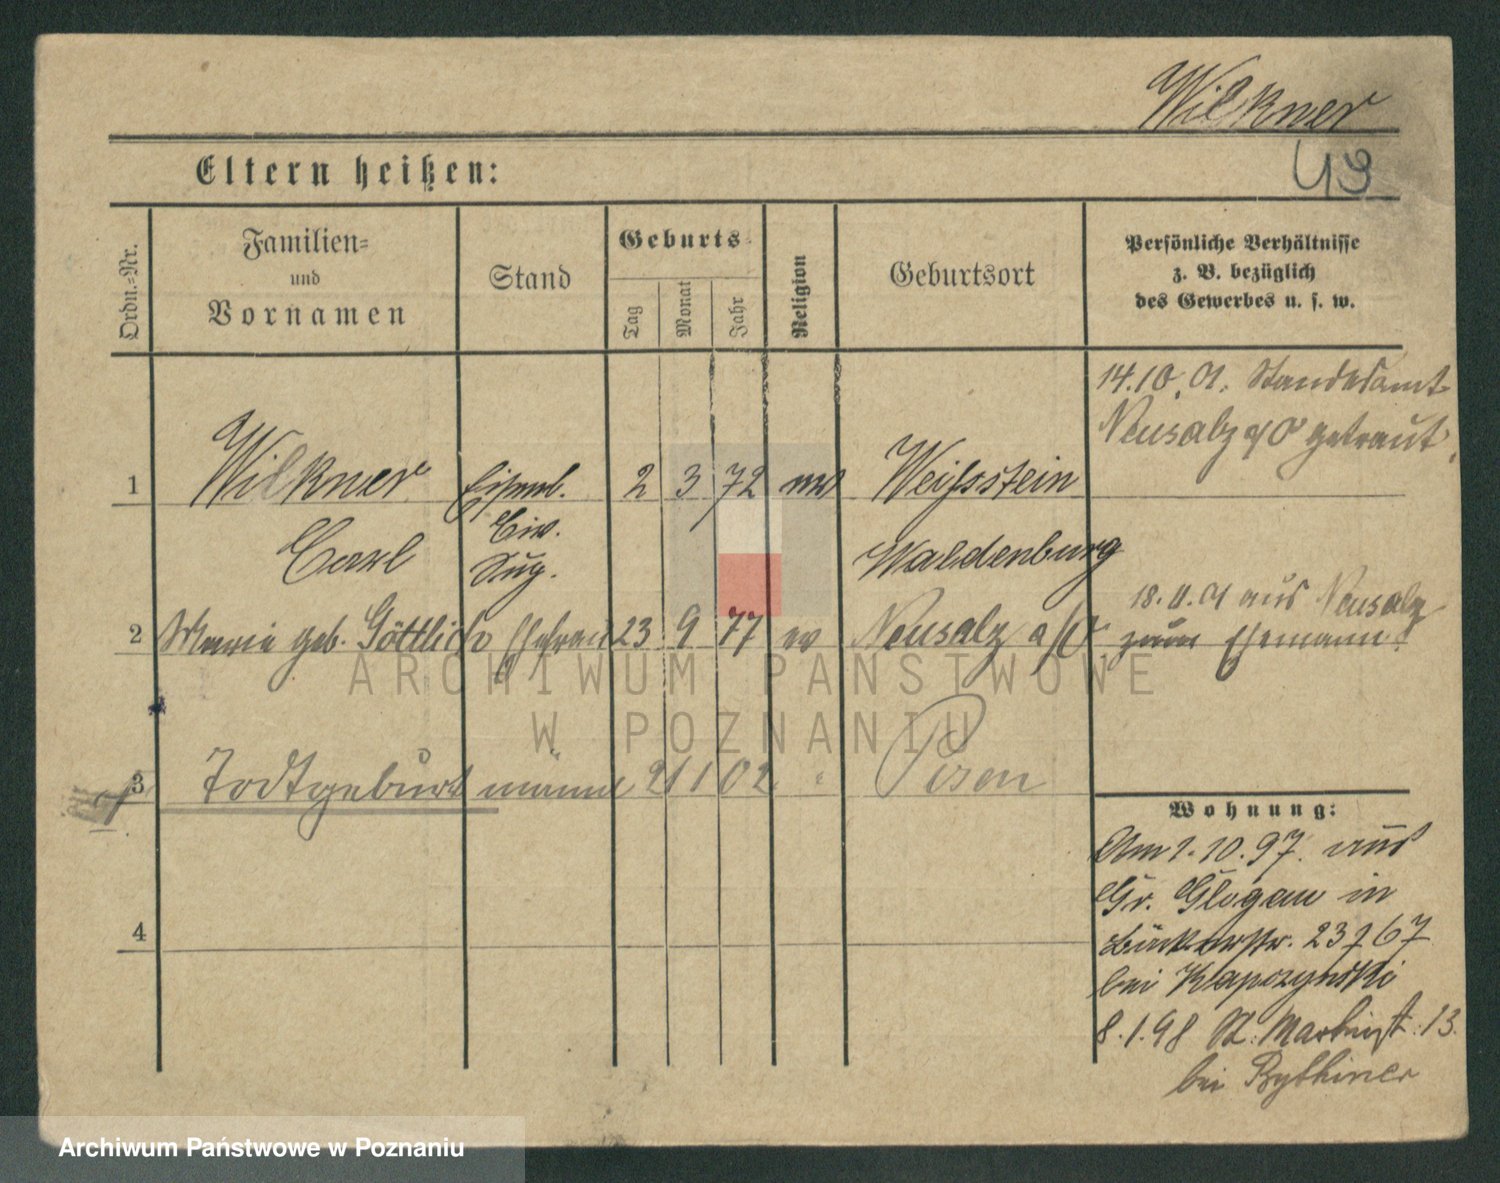 Wilkner
43
Eltern heißen:
Ordn.=Nr.
Familien=
und
Vornamen
Stand
Geburts=
Tag
Monat
Jahr
Religion
Geburtsort
Persönliche Verhältnisse
z. B. bezüglich
des Gewerbes u. s. w.
14.10.01. Standesamt
Neusalz a/O getraut.
1 Wilkner Eisenb. 2 3 72 Weißstein
Carl Civ. Waldenburg
Sup.
18.11.01 aus Neusalz
2 Marie geb. Göttlich Ehefrau 23 9 77 ev Neusalz a/O zum Ehemann.
3 Todtgeburt männl 21 1 02 " Posen
Wohnung:
Am 1.10.97. aus
Gr. Glogau in
Bäckerstr. 23
bei
4
8.1.98 St. Martinst. 13.
bei
ARCHIWUM PAŃSTWOWE
W POZNANIU
Archiwum Państwowe w Poznaniu